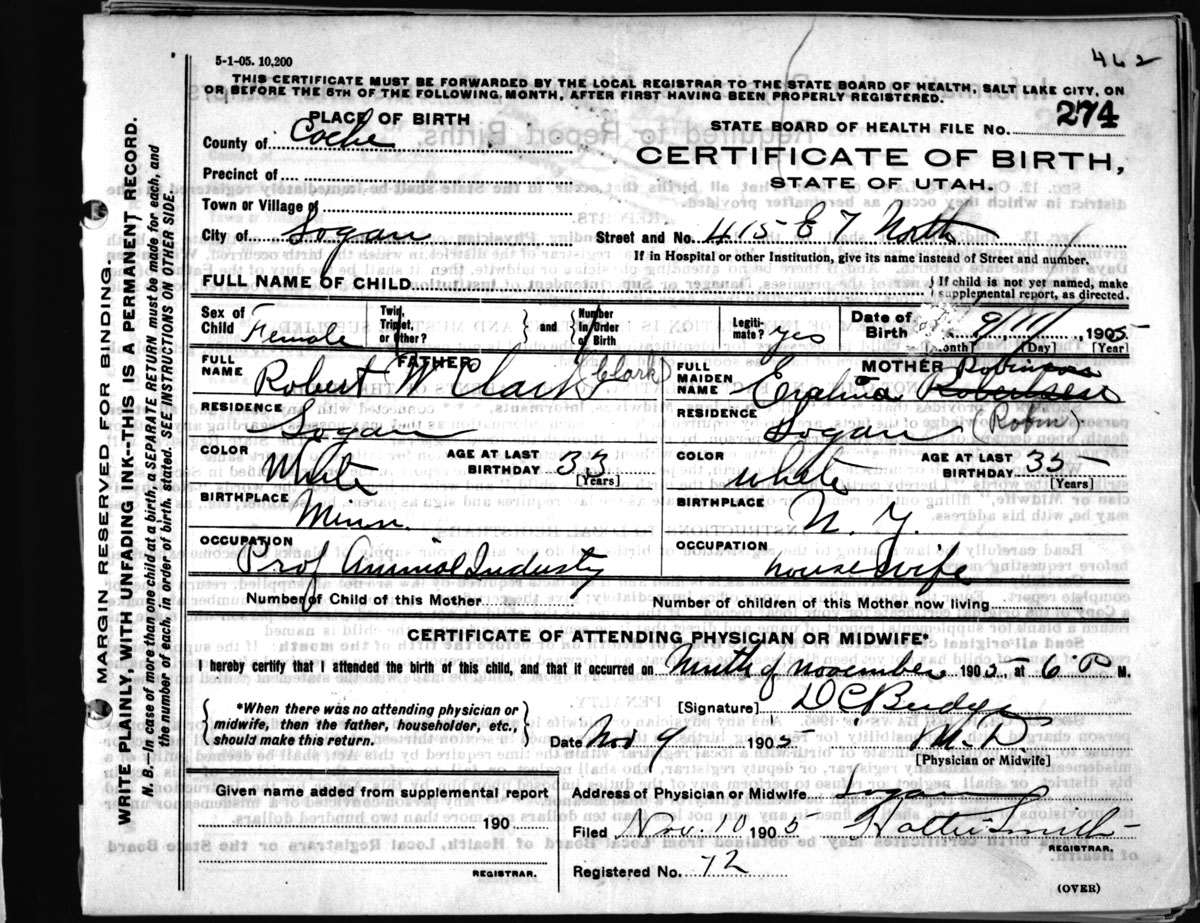 462
5-1-05. 10,200
THIS CERTIFICATE MUST BE FORWARDED BY THE LOCAL REGISTRAR TO THE STATE BOARD OF HEALTH, SALT LAKE CITY, ON
OR BEFORE THE 5TH OF THE FOLLOWING MONTH, AFTER FIRST HAVING BEEN PROPERLY REGISTERED.
PLACE OF BIRTH
STATE BOARD OF HEALTH FILE NO. 274
County of Cache
CERTIFICATE OF BIRTH,
Precinct of
STATE OF UTAH.
Town or Village of
City of Logan
Street and No. 415 E 7 North
If in Hospital or other Institution, give its name instead of Street and number.
FULL NAME OF CHILD
{ If child is not yet named, make
supplemental report, as directed.
Sex of Child Female
Twin, Triplet, or other? } and { Number in Order of Birth
Legitimate? yes
Date of Birth 9/11/, 1905
(Month) (Day) [Year]
FATHER
FULL NAME Robert W Clark (Clark)
MOTHER
FULL MAIDEN NAME Robertson Robinson
RESIDENCE Logan
RESIDENCE Logan (Robin)
COLOR White
AGE AT LAST BIRTHDAY 33 [Years]
COLOR white
AGE AT LAST BIRTHDAY 35 [Years]
BIRTHPLACE Minn.
BIRTHPLACE N. Y.
OCCUPATION Prof Animal Industy
OCCUPATION housewife
Number of Child of this Mother
Number of children of this Mother now living
CERTIFICATE OF ATTENDING PHYSICIAN OR MIDWIFE*
I hereby certify that I attended the birth of this child, and that it occurred on Ninth of november 1905, at 6 P M.
{ *When there was no attending physician or midwife, then the father, householder, etc., should make this return. }
[Signature] D C Budge
Date Nov 9 1905 M.D.
[Physician or Midwife]
Given name added from supplemental report
190
REGISTRAR.
Address of Physician or Midwife Logan
Filed Nov. 10 1905 Hattie Smith
REGISTRAR.
Registered No. 72
(OVER)
MARGIN RESERVED FOR BINDING.
WRITE PLAINLY WITH UNFADING INK--THIS IS A PERMANENT RECORD.
N. B.—In case of more than one child at a birth, a SEPARATE RETURN must be made for each, and
the number of each, in order of birth, stated. SEE INSTRUCTIONS ON OTHER SIDE.